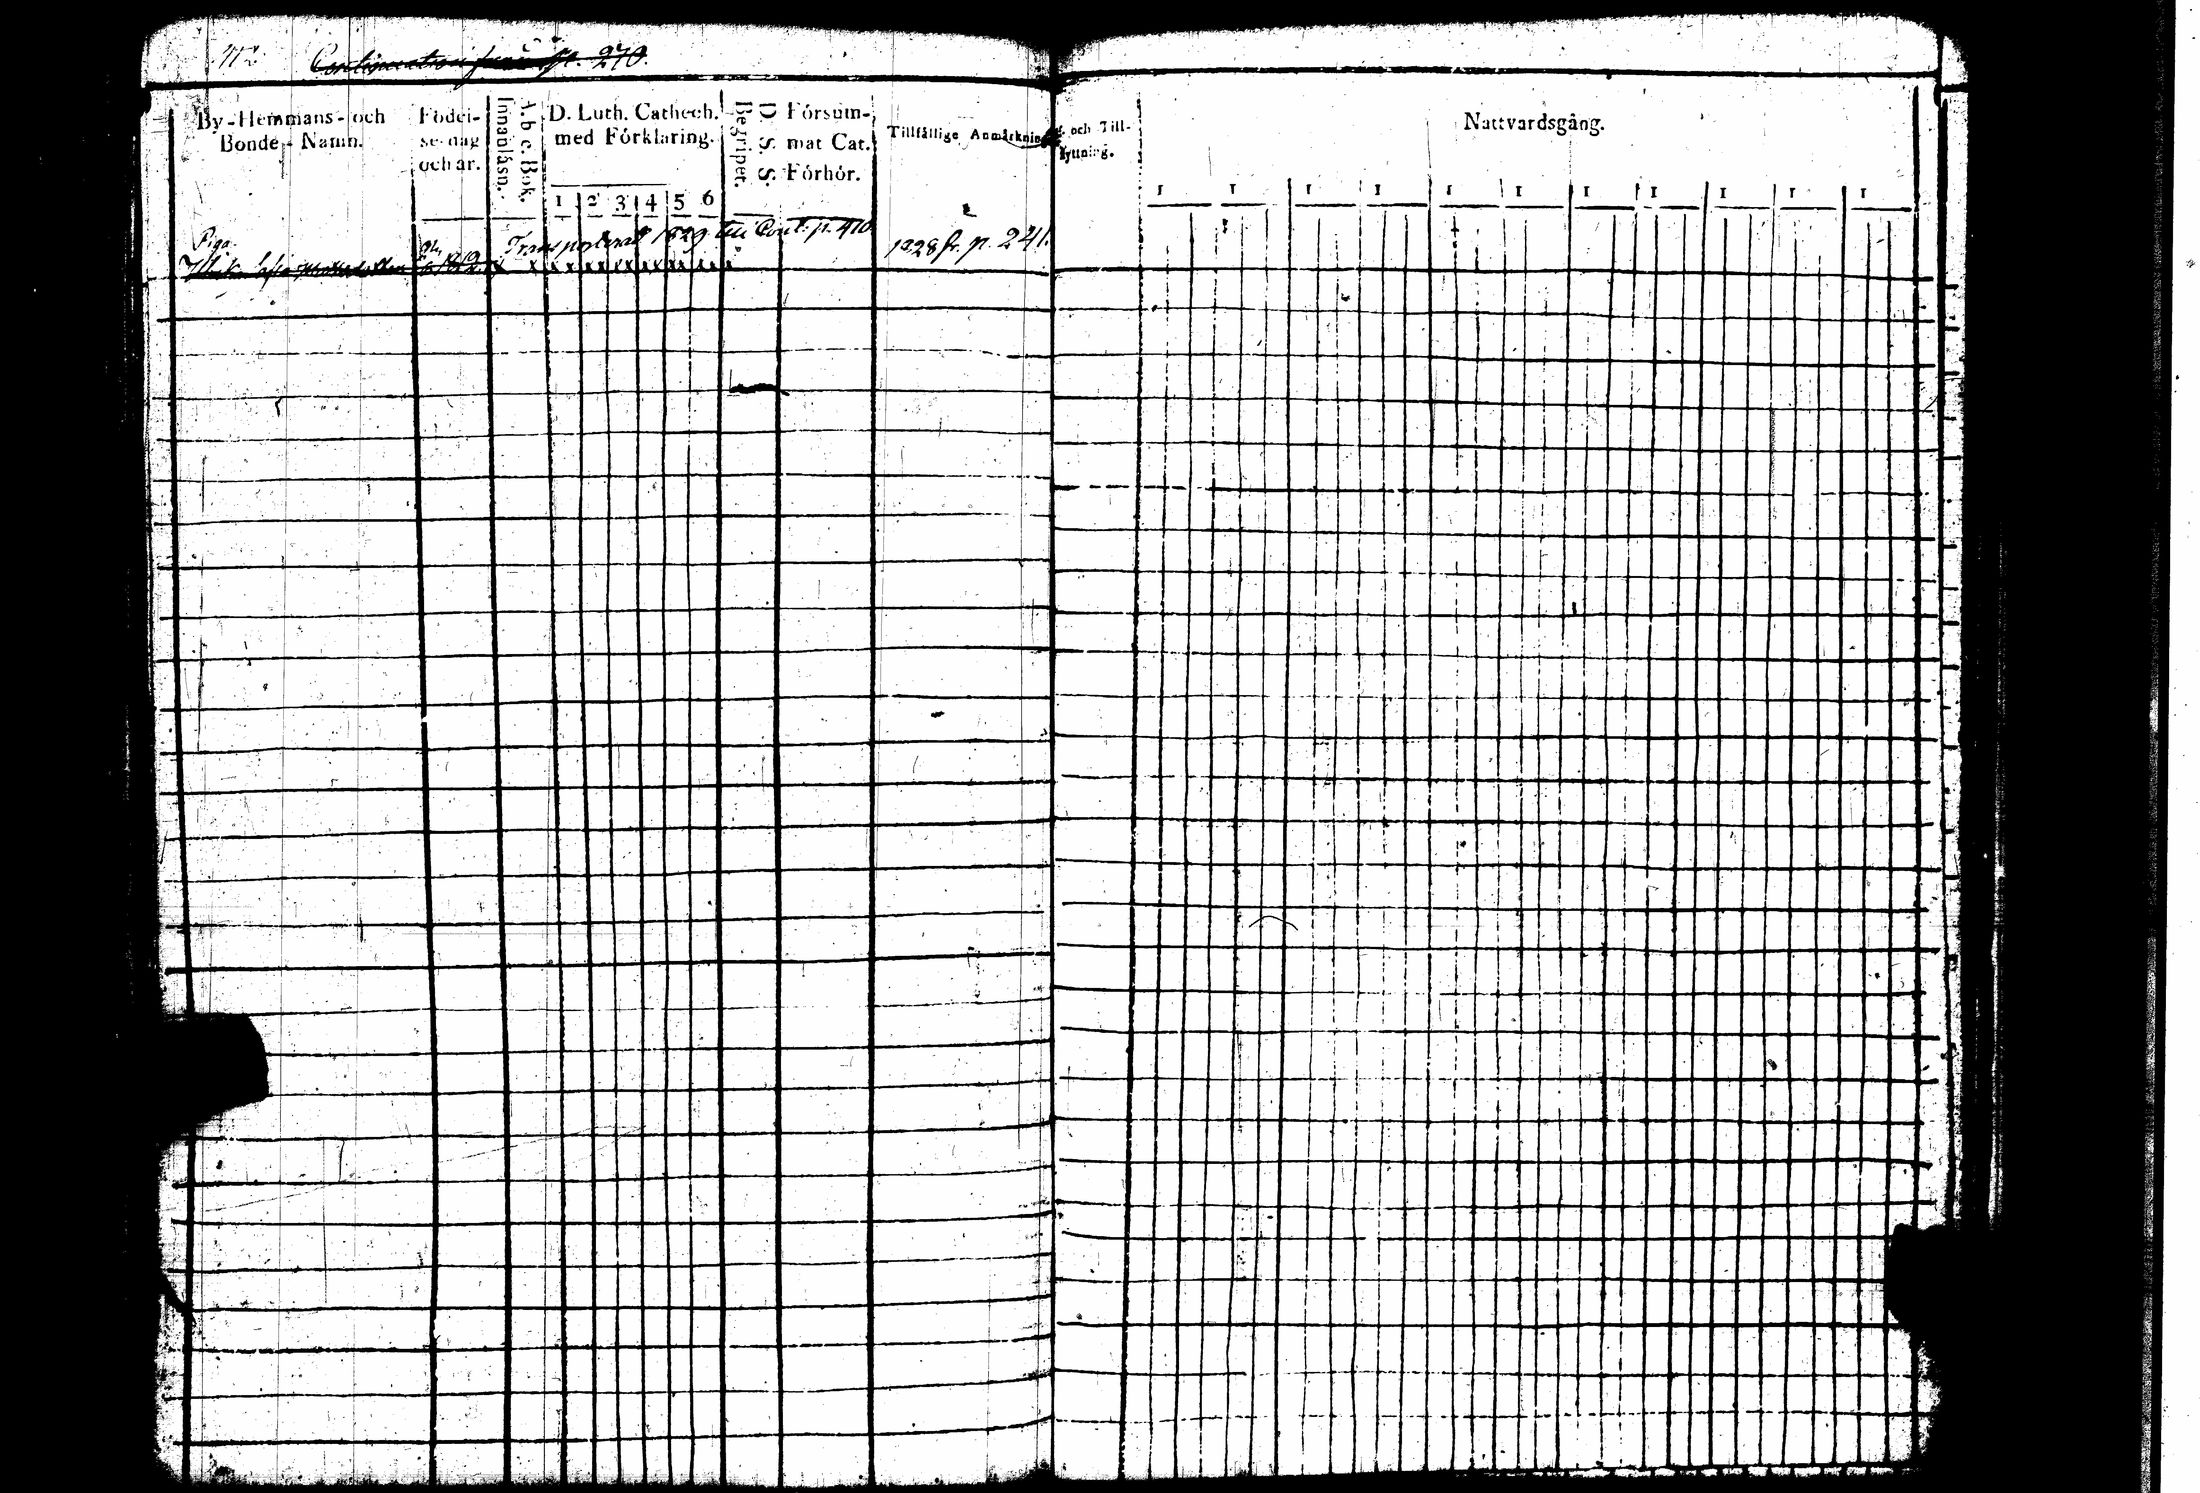 412 Continuation från p. 270.
By-Hemmans- och Bonde-Namn.
Födel-
se-dag
och år.
Innanläsn.
A. b c. Bok.
D. Luth. Cathech.
med Förklaring.
1 2 3 4 5 6
Begripet.
D. S. S.
Försum-
mat Cat.
Förhör.
Tillfällige Anmärkning och Till-
flyttning.
Nattvardsgång.
1 1 1 1 1 1 1 1 1 1 1
Piga
Transporterad 1829 till Cont. p. 410
1828 fr. p. 241.
1812 x x x x x x x x x x x x x x